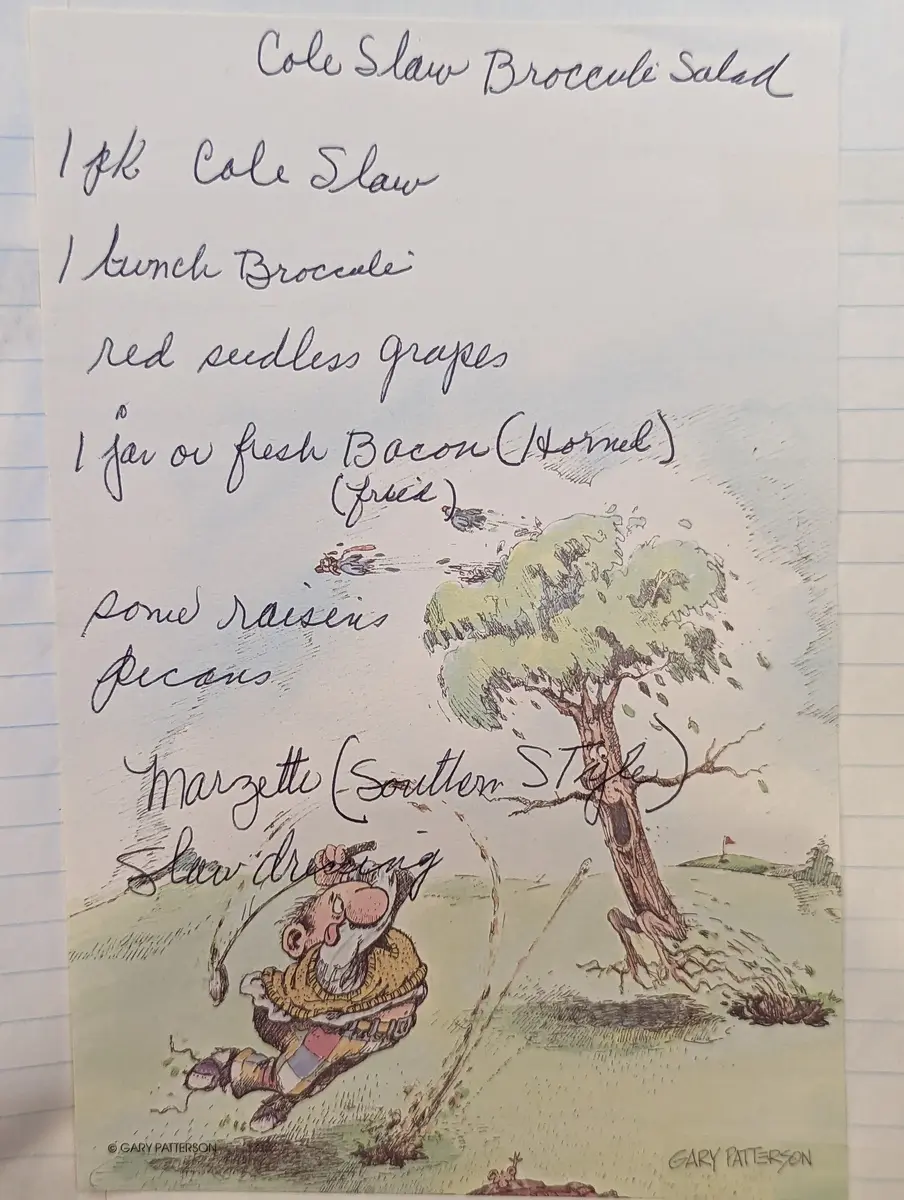 Cole Slaw Broccoli Salad
1 pk Cole Slaw
1 bunch Broccoli
red seedless grapes
1 jar or fresh Bacon (Hormel)
(fried)
some raisins
pecans
Marzetti (Southern STyle)
Slaw dressing
© GARY PATTERSON
GARY PATTERSON